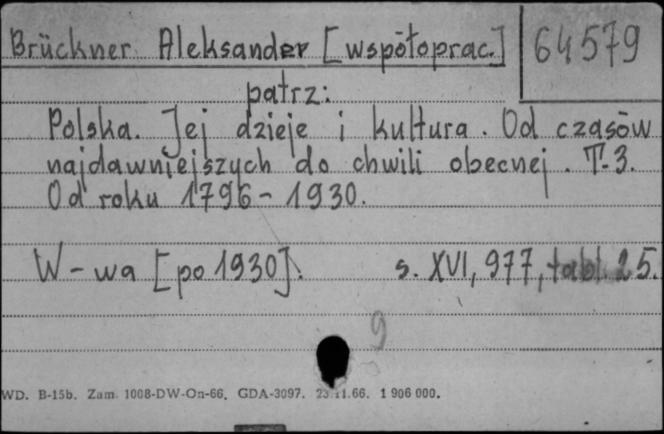 Brückner Aleksander [współoprac.] 64579
patrz:
Polska. Jej dzieje i kultura. Od czasów
najdawniejszych do chwili obecnej. T. 3.
Od roku 1796 - 1930.
W-wa [po 1930]. s. XVI, 977, tabl. 25.
9
WD. B-15b. Zam. 1008-DW-On-66. GDA-3097. 23.11.66. 1 906 000.